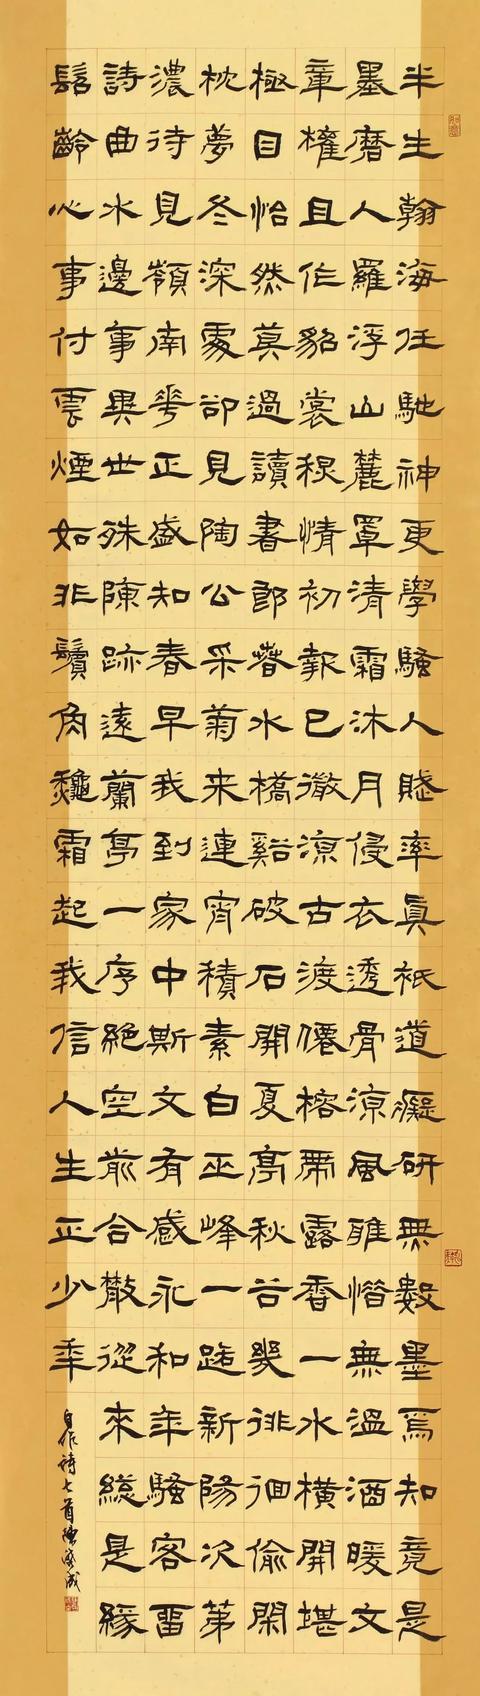 半生翰海任馳神更學騷人賦率真祇道癡研無數墨焉知竟是
墨磨人羅浮山麓罩清霜沐月侵衣透骨涼風雅惜無溫酒暖文
章權且作貂裳情初報已微涼古渡僊榕帶露香一水橫開堪
極目怡然莫過讀書郎水橋谿破石開夏亭秋谷幾徘徊偷閑
枕夢冬深處卻見陶公采菊来連宵積素白巫峰一踏新陽次第
濃待見嶺南花正盛知春早我到家中斯文有感永和年騷客留
詩曲水邊事異世殊陳跡遠蘭亭一序絕空前合散從來總是緣
髫齡心事付雲煙如非鬢角霜起我信人生正少年
自作詩七首陳成